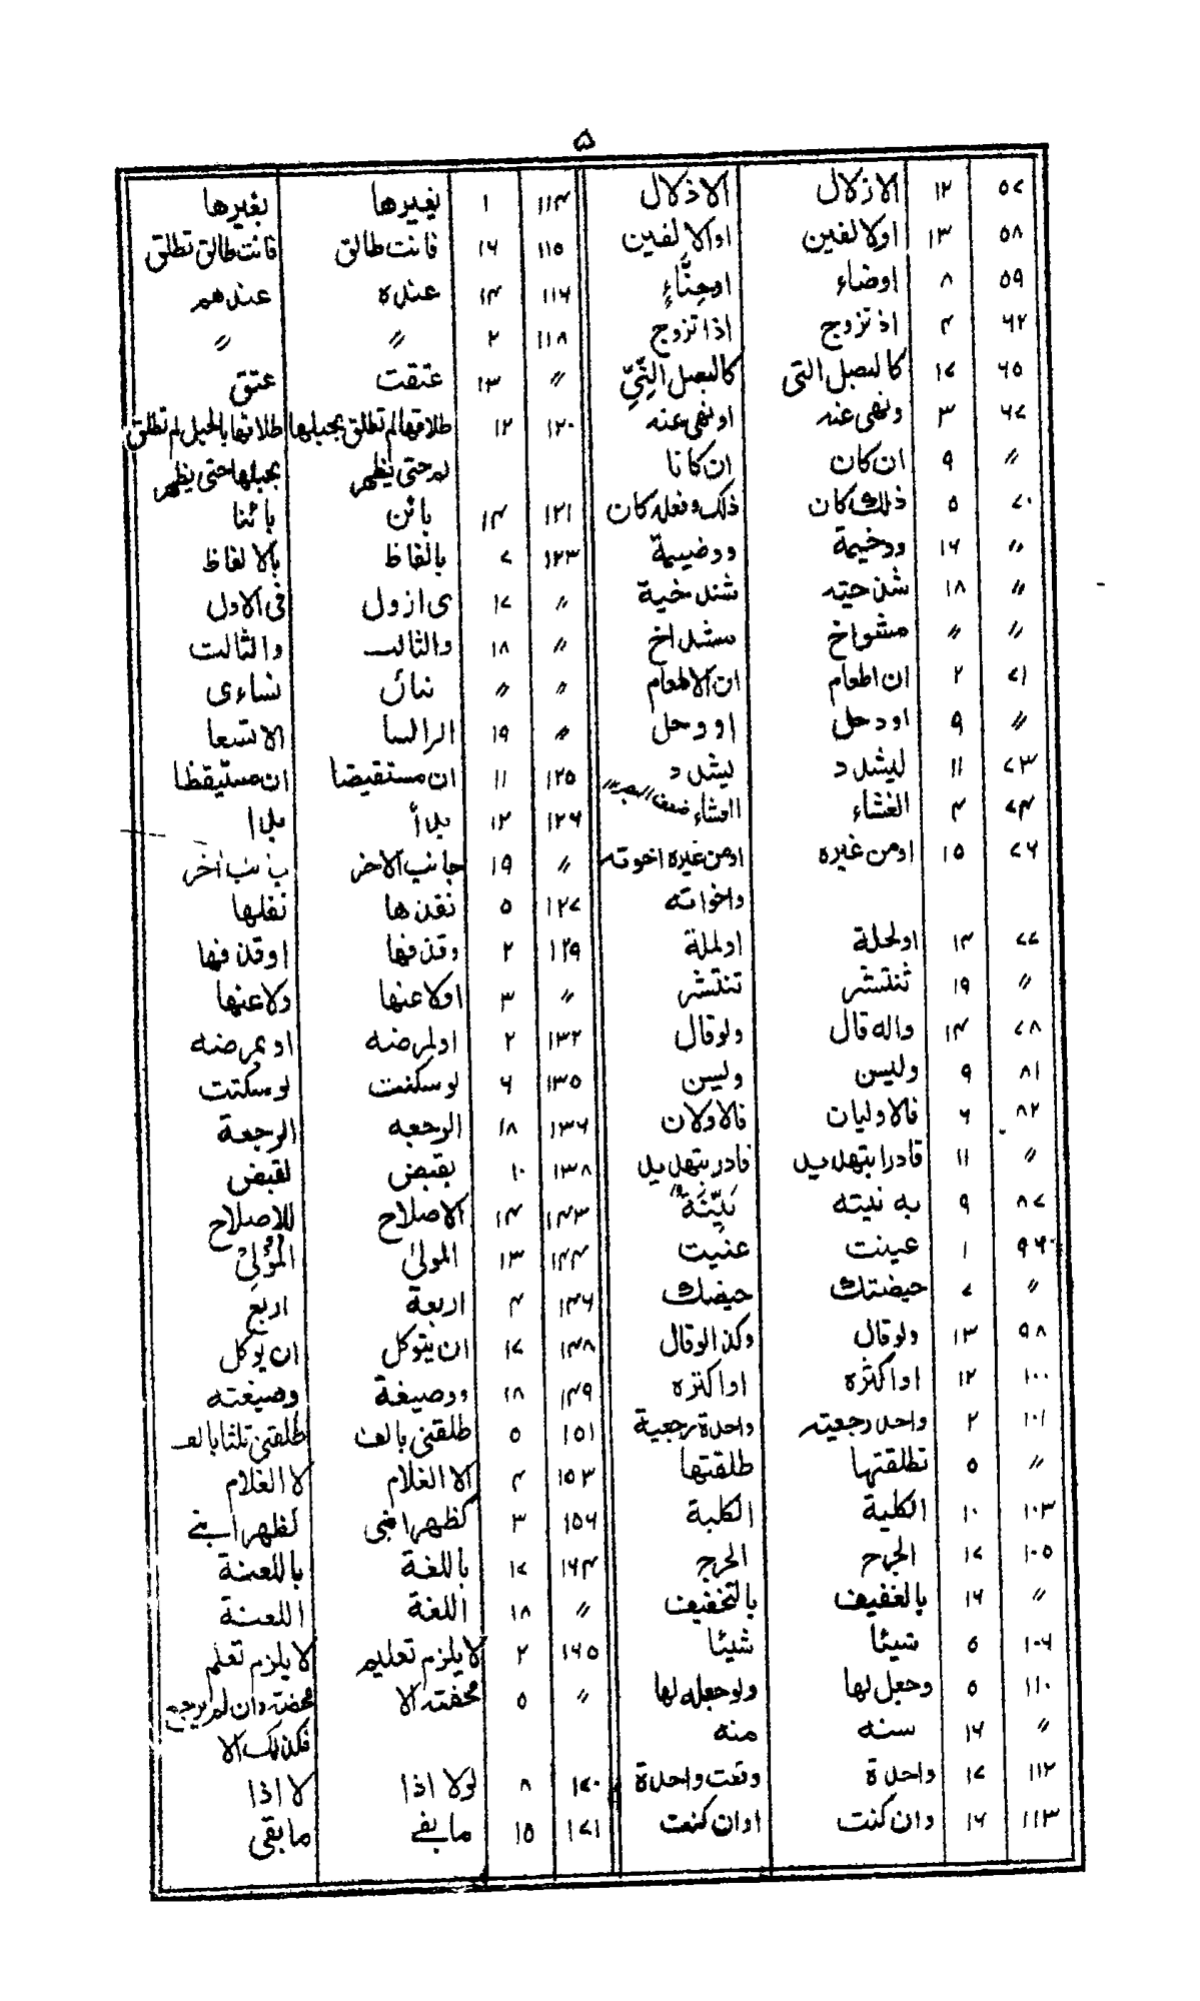 ۵
۵۷ ۱۲ الازلال الاذلال
۵۸ ۱۳ اوکالفین اوالالفین
۵۹ ۸ اوضاء اوجِنَّاءٍ
۶۲ ۴ اذ تزوج اذا تزوج
۶۵ ۱۷ کالبصل التی کالبصل النِّیِّ
۶۷ ۳ ونهی عنه اونهی عنه
〃 ۹ ان کان ان کانا
۷۰ ۵ ذلك کان ذلک وفعله کان
〃 ۱۶ ووخیمة ووضیمة
〃 ۱۸ شذ حیته شند خیة
〃 〃 مشواخ ستداخ
۷۱ ۲ ان اطعام ان الاطعام
〃 ۹ اودحل اووحل
۷۳ ۱۱ لیشدد یشدد
۷۴ ۴ الغشاء العشاء ضعف البصر
۷۶ ۱۵ اومن غیره اومن غیره اخوته
واخواته
۷۷ ۱۴ اولحلة اولملة
〃 ۱۹ ثنتشر تنتشر
۷۸ ۱۴ واله قال ولوقال
۸۱ ۹ ولیس ولیس
۸۲ ۶ فالاولیان فالاولان
〃 ۱۱ قادرا بتهدید قادر بتهدید
۸۷ ۹ به نیته بَیِّنَةٌ
۹۶ ۱ عینت عنیت
〃 ۷ حیضتك حیضك
۹۸ ۱۳ ولوقال وکذا لوقال
۱۰۰ ۱۲ اواکثره اواکثره
۱۰۱ ۲ واحد رجعیته واحدة رجعیة
〃 ۵ تطلقتها طلقتها
۱۰۳ ۱۰ الکلیة الکلبة
۱۰۵ ۱۷ الجرح الحرج
〃 ۱۶ بالغفیف بالتخفیف
۱۰۶ ۵ شیئا شیئا
۱۱۰ ۵ وجعل لها ولوجعله لها
〃 ۱۶ سنه منه
۱۱۲ ۱۷ واحدة وقعت واحدة
۱۱۳ ۱۶ وان کنت اوان کنت
۱۱۴ ۱ یغیرها بغیرها
۱۱۵ ۱۶ فانت طالق فانت طالق تطلق
۱۱۶ ۱۴ عنده عندهم
۱۱۸ ۲ 〃 〃
〃 ۱۳ عتقت عتق
۱۲۰ ۱۲ طلاقها لم تطلق بحبلها طلاقها بالحبل لم تطلق
لم حتی یظهر بحبلها حتی یظهر
۱۲۱ ۱۴ بائن بائنا
۱۲۳ ۷ بالفاظ بالالفاظ
〃 ۱۷ ی ازول فی الاول
〃 ۱۸ والثالث والثالث
〃 〃 نسائ نساءی
〃 ۱۹ الرالسا الاتسعا
۱۲۵ ۱۱ ان مستقیضا ان مستیقظا
۱۲۶ ۱۲ بدأ بدا
〃 ۱۹ جانب الاخر اخر
۱۲۷ ۵ نقذها نقلها
۱۲۹ ۲ وقذفها اوقذفها
〃 ۳ اولاعنها ولاعنها
۱۳۲ ۲ اولمرضه اوبمرضه
۱۳۵ ۶ لوسکنت لوسکتت
۱۳۶ ۱۸ الرحعه الرجعة
۱۳۸ ۱۰ بقبض لقبض
۱۴۳ ۱۴ الاصلاح للاصلاح
۱۴۴ ۱۳ المولیٰ المُؤْلِیْ
۱۴۶ ۴ اربعة اربع
۱۴۸ ۱۷ ان یتوکل ان یوکل
۱۴۹ ۱۸ ووصیغة وصیغته
۱۵۱ ۵ طلقنی بالف طلقنی ثلثا بالف
۱۵۳ ۴ الا الغلام لا الغلام
۱۵۶ ۳ کظهر امی کظهر ابنے
۱۶۴ ۱۷ باللغة باللعنة
〃 ۱۸ اللغة اللعنة
۱۶۵ ۲ لا یلزم تعلیم لا یلزم تعلم
〃 ۵ محفته الا محضته وان لم یرجع
فکذلک الا
۱۷۰ ۸ لولا اذا لا اذا
۱۷۱ ۱۵ ما یفے ما بقی